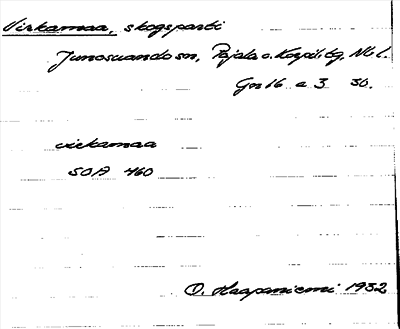 Virkamaa, skogsparti
Junosuando sn, Pajala o. Korpil. tg, Nb. l.
Gs 16 a 3 30.
virkamaa
SOA 460
O. Haapaniemi 1932